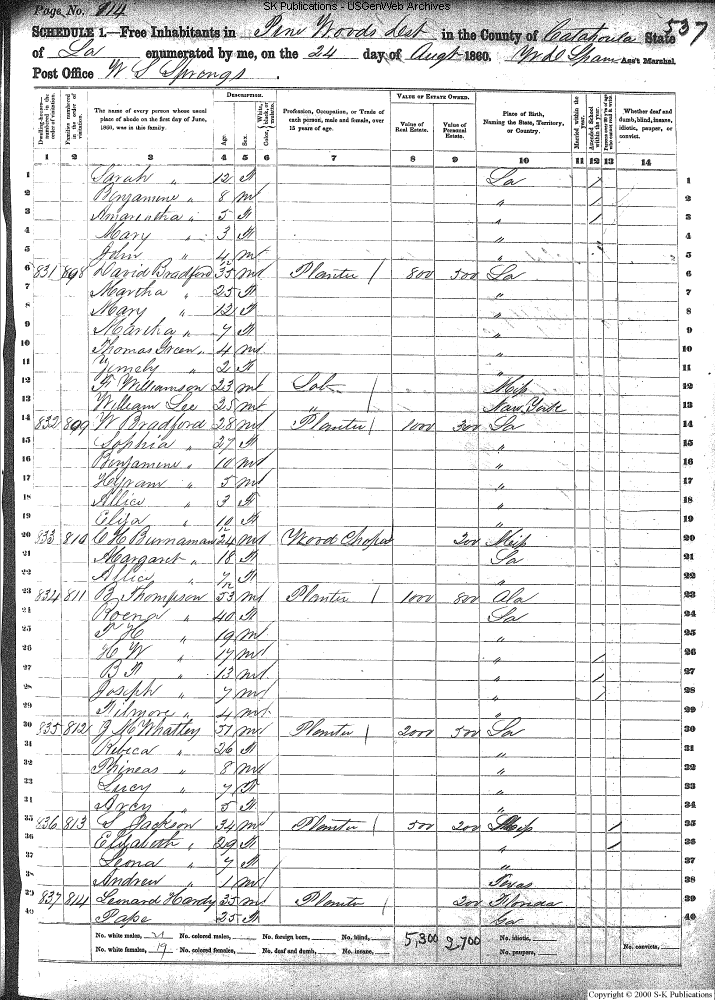 SK Publications - USGenWeb Archives
Page No. 114
537
SCHEDULE 1.—Free Inhabitants in Pine Woods Dist in the County of Catahoula State
of La enumerated by me, on the 24 day of Augt 1860. Ass't Marshal.
Post Office W S Springs.
Dwelling-houses—numbered in the order of visitation.
Families numbered in the order of visitation.
The name of every person whose usual place of abode on the first day of June, 1860, was in this family.
DESCRIPTION.
Age.
Sex.
Color, White, black, or mulatto.
Profession, Occupation, or Trade of each person, male and female, over 15 years of age.
VALUE OF ESTATE OWNED.
Value of Real Estate.
Value of Personal Estate.
Place of Birth, Naming the State, Territory, or Country.
Married within the year.
Attended School within the year.
Whether deaf and dumb, blind, insane, idiotic, pauper, or convict.
1 2 3 4 5 6 7 8 9 10 11 12 13 14
1 Sarah " 12 f La / 1
2 Benjamine " 8 m " / 2
3 Amarentha " 5 f " / 3
4 Mary " 3 f " 4
5 John " 4/12 m " 5
6 831 898 David Bradford 35 m Planter / 800 500 La 6
7 Martha " 25 f " 7
8 Mary " 12 f " 8
9 Martha " 7 f " 9
10 Thomas Green " 4 m " 10
11 " 2 f " 11
12 F Williamson 23 m Lab Mip 12
13 William Lee 25 m " New York 13
14 832 899 W Bradford 28 m Planter / 1000 300 La 14
15 Sophia " 27 f " 15
16 Benjamine " 10 m " 16
17 Hyram " 5 m " 17
18 Allice " 3 f " 18
19 Eliza " 10/12 f " 19
20 833 810 C H Burnaman 24 m Wood Choper 200 Mip 20
21 Margaret " 18 f La 21
22 Allice " 7/12 f " 22
23 834 811 B Thompson 53 m Planter / 1000 800 Ala 23
24 Roena " 40 f La 24
25 " 19 m " 25
26 H W " 17 m " / 26
27 " 13 m " / 27
28 Joseph " 7 m " / 28
29 Filmore " 4 m " 29
30 835 812 J M Whatley 51 m Planter / 2000 500 La 30
31 Rebica " 26 f " 31
32 Phineas " 8 m " 32
33 Lucy " 7 f " 33
34 Arcy " 5 f " 34
35 836 813 S Jackson 34 m Planter / 500 200 Mip / 35
36 Elizabeth " 29 f " / 36
37 Leona " 7 f " 37
38 Andrew " 1 m Texas 38
39 837 814 Leonard Hardy 35 m Planter / 200 Florida 39
40 " 25 f Ga 40
No. white males, 21 No. colored males, No. foreign born, No. blind, 5,300 2,700 No. idiotic,
No. white females, 19 No. colored females, No. deaf and dumb, No. insane, No. paupers, No. convicts,
Copyright © 2000 S-K Publications